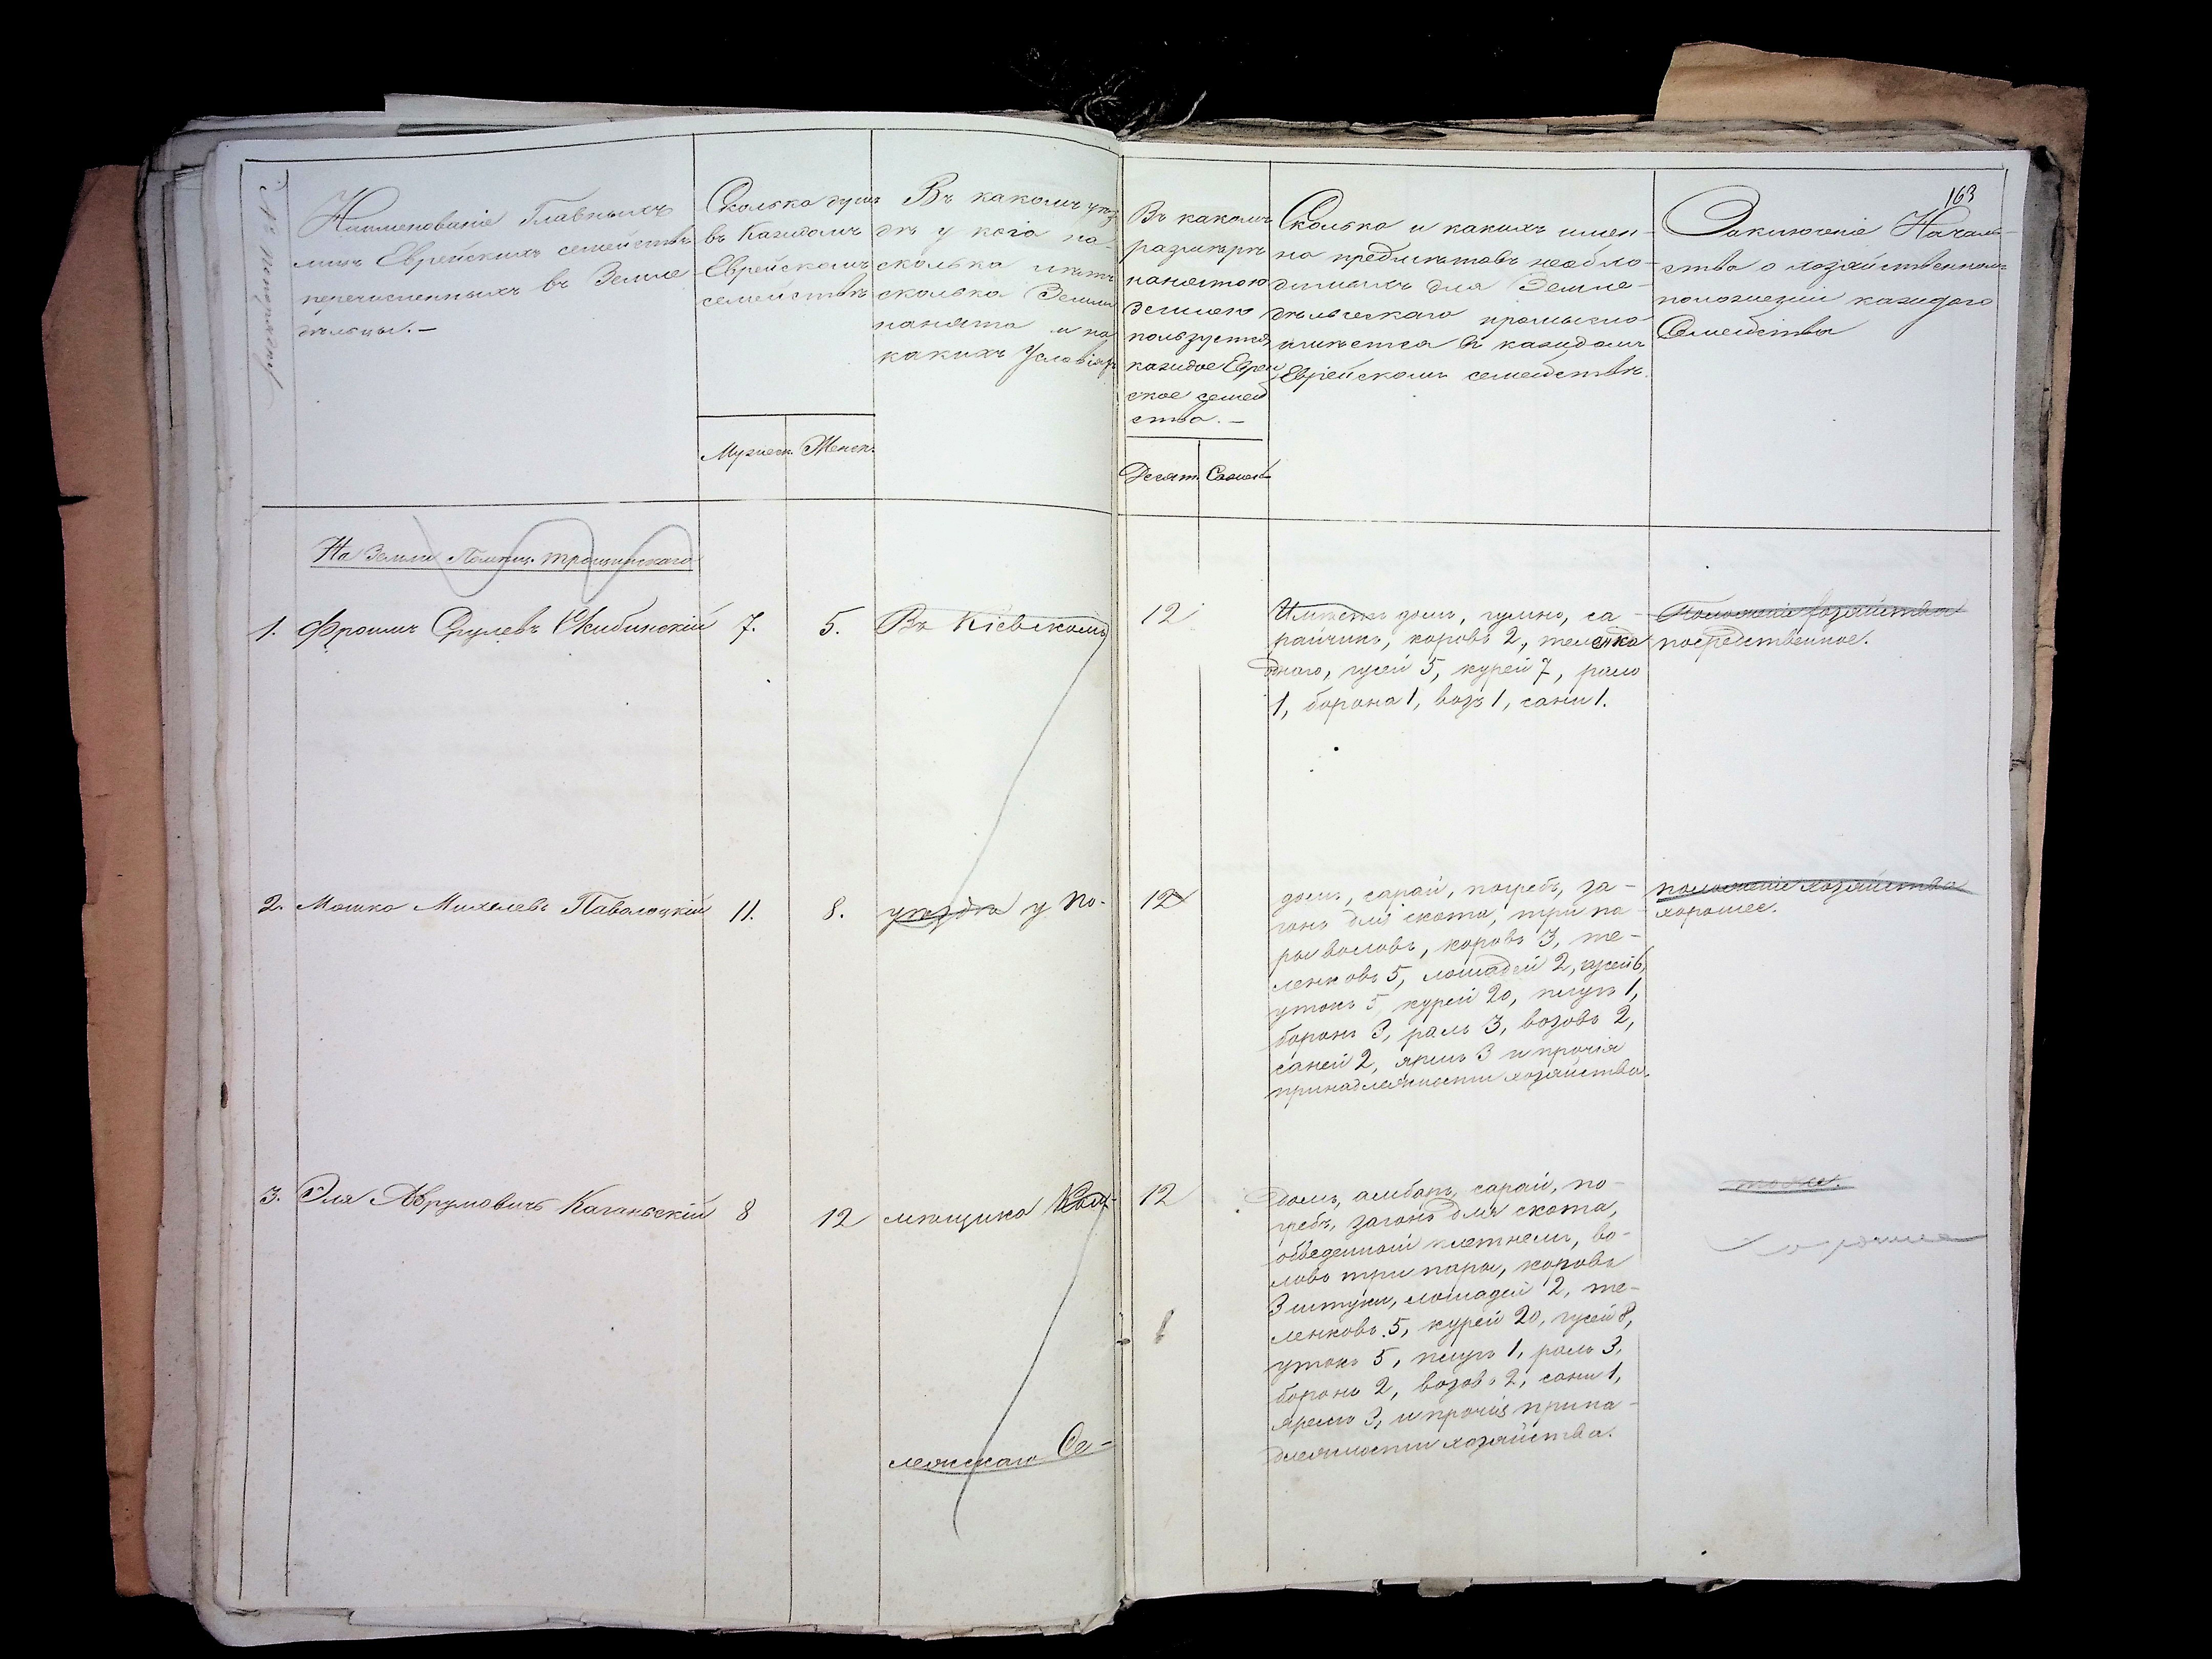 163
№ по порядку
Наименованіе Главныхъ
лицъ Еврейскихъ семействъ
перечисленныхъ въ Земле
дѣльцы. —
Сколько душъ
въ Каждомъ
Еврейскомъ
семействѣ
Мужеск.
Женск.
Въ какомъ уѣз
дѣ у кого на-
сколько лѣтъ
сколько Земли
нанято и на
какихъ Условіяхъ
Въ какомъ
размѣрѣ
нанятою
землею
пользуется
каждое Еврей
ское семей
ство. —
Десят.
Сажень
Сколько и какихъ имен-
но предметовъ необхо-
димыхъ для Земле-
дѣльческаго промысла
имѣется въ каждомъ
Еврейскомъ семействѣ.
Заключеніе Началь-
ства о хозяйственномъ
положеніи каждого
Семейства
На Земли Помѣщ. Трощинскаго
1. Фроимъ Срулевъ Скибинскій 7. 5. Въ Кіевскомъ 12
Имѣетъ домъ, гумно, са-
райчикъ, коровъ 2, теленка
одного, гусей 5, курей 7, рало
1, борона 1, возъ 1, сани 1.
Положеніе хозяйства
посредственное.
2. Мошко Михелевъ Паволоцкій 11. 8. уѣздѣ у по- 12
домъ, сарай, погребъ, за-
гонъ для скота, три па-
ры воловъ, коровъ 3, те-
ленковъ 5, лошадей 2, гусей 6,
утокъ 5, курей 20, плугъ 1,
боронъ 3, ралъ 3, возовъ 2,
саней 2, ярмъ 3 и прочія
принадлежности хозяйства.
положеніе хозяйства
хорошее.
3. Эля Абрумовичъ Каганьскій 8 12 мѣщика 12
домъ, амбаръ, сарай, по-
гребъ, загонъ для скота,
обведенный плетнемъ, во-
ловъ три пары, коровъ
3 штуки, лошадей 2, те-
ленковъ 5, курей 20, гусей 8,
утокъ 5, плугъ 1, ралъ 3,
боронъ 2, возовъ 2, сани 1,
яремъ 3, и прочія прина-
длежности хозяйства.
тоже.
хорошее
Се-